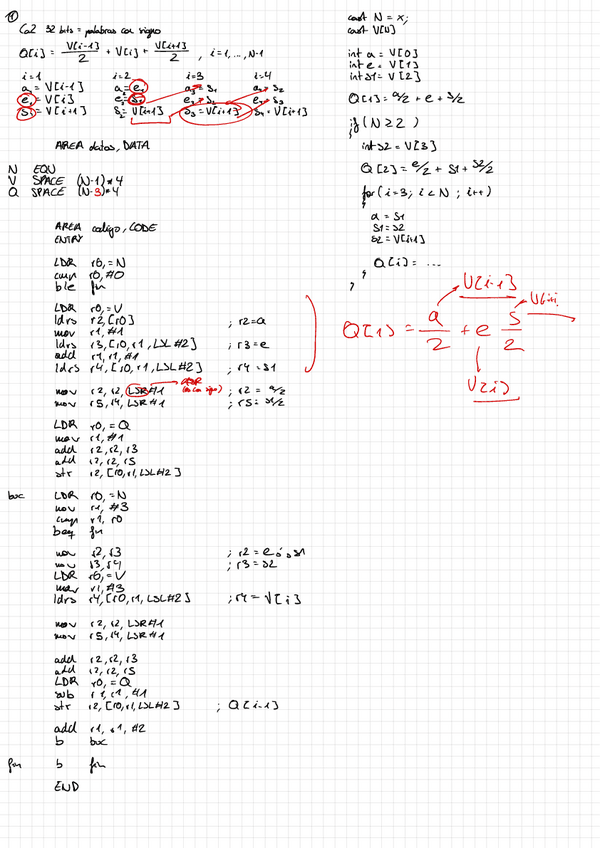 11
Ca2 32 bits = palabras con signo
Q[i] = V[i-1]/2 + V[i] + V[i+1]/2 , i=1,..., N-1
i=1 i=2 i=3 i=4
a1 = V[i-1] a2 = e1 a3 = s1 a4 = s2
e1 = V[i] e2 = s1 e3 = s2 e4 = s3
s1 = V[i+1] s2 = V[i+1] s3 = V[i+1] s4 = V[i+1]
AREA datos, DATA
N EQU
V SPACE (N-1)*4
Q SPACE (N-3)*4
AREA codigo, CODE
ENTRY
LDR r0, =N
cmp r0, #0
ble fin
LDR r0, =V
ldrs r2, [r0] ; r2=a
mov r1, #1
ldrs r3, [r0, r1, LSL #2] ; r3=e
add r1, r1, #1
ldrs r4, [r0, r1, LSL #2] ; r4 = s1
mov r2, r2, LSR #1 ; r2 = a/2
ASR
mov r5, r4, LSR #1 ; r5 = s1/2
LDR r0, = Q
mov r1, #1
add r2, r2, r3
add r2, r2, r5
str r2, [r0, r1, LSL #2]
buc LDR r0, =N
mov r1, #3
cmp r1, r0
beq fin
mov r2, r3 ; r2 = e ó s1
mov r3, r4 ; r3 = s2
LDR r0, = V
mov r1, #3
ldrs r4, [r0, r1, LSL #2] ; r4 = V[i]
mov r2, r2, LSR #1
mov r5, r4, LSR #1
add r2, r2, r3
add r2, r2, r5
LDR r0, = Q
sub r1, r1, #1
str r2, [r0, r1, LSL #2] ; Q[i-1]
add r1, r1, #2
b buc
fin b fin
END
const N = x;
const V[N]
int a = V[0]
int e = V[1]
int s1 = V[2]
Q[1] = a/2 + e + s/2
if (N ≥ 2 )
{
int s2 = V[3]
Q[2] = e/2 + s1 + s2/2
for (i=3; i < N ; i++)
{
a = s1
s1 = s2
s2 = V[i+1]
Q[i] = ...
}
}
V[i-1]
Q[1] = a/2 + e s/2
V[i]